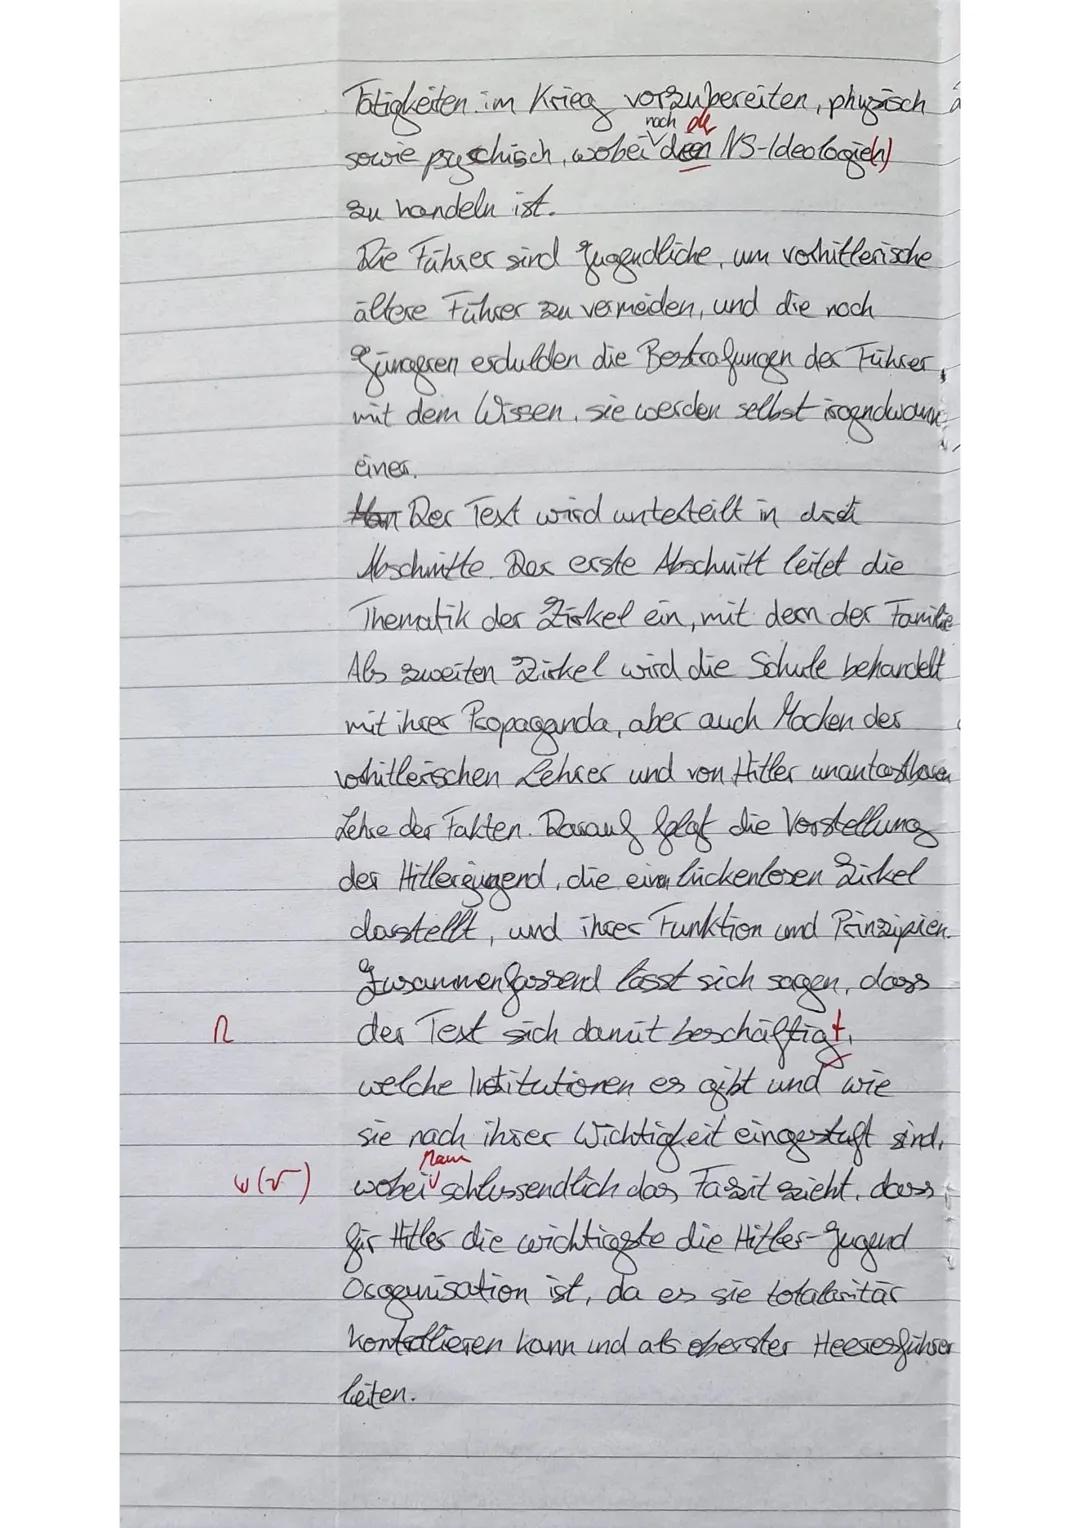 Tätigkeiten im Krieg vorzubereiten, physisch
noch der
sowie psychisch, wobei den NS-Ideologie(n)
zu handeln ist.
Die Führer sind Jugendliche, um vorhitlerische
ältere Führer zu vermeiden, und die noch
Jüngeren erdulden die Bestrafungen der Führer,
mit dem Wissen, sie werden selbst irgendwann
einer.
Der Text wird unterteilt in drei
Abschnitte. Der erste Abschnitt leitet die
Thematik der Zirkel ein, mit dem der Familie
Als zweiten Zirkel wird die Schule behandelt
mit ihrer Propaganda, aber auch Macken der
vorhitlerischen Lehrer und von Hitler unantastbaren
Lehre der Fakten. Darauf folgt die Vorstellung
der Hitlerjugend, die einen lückenlosen Zirkel
darstellt, und ihrer Funktion und Prinzipien.
Zusammenfassend lässt sich sagen, dass
R der Text sich damit beschäftigt,
welche Institutionen es gibt und wie
sie nach ihrer Wichtigkeit eingestuft sind,
man
w(√) wobei schlussendlich das Fazit zieht, dass
für Hitler die wichtigste die Hitler-Jugend
Organisation ist, da es sie totalaritär
kontrollieren kann und als oberster Heeresführer
leiten.